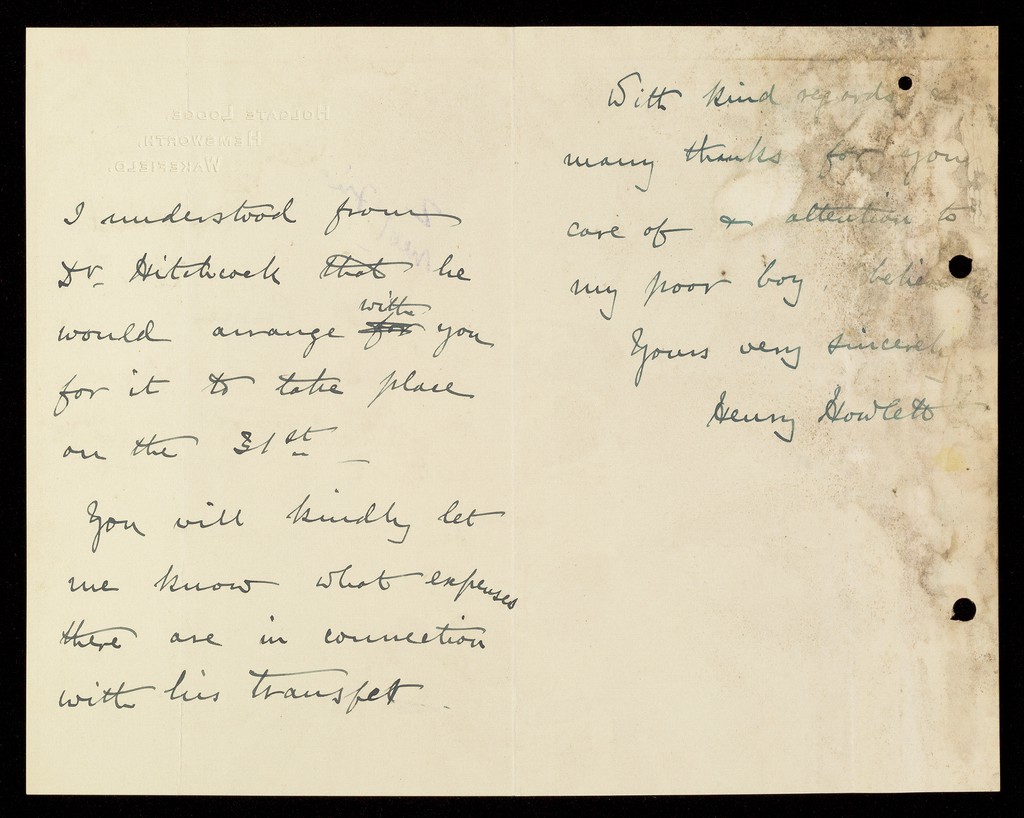 HOLGATE LODGE,
HEMSWORTH,
WAKEFIELD.
I understood from
Dr. Hitchcock that he
would arrange with for you
for it to take place
on the 31st
You will kindly let
me know what expenses
there are in connection
with his transfer
With kind regards &
many thanks for your
care of & attention to
my poor boy believe
Yours very sincerely
Henry Howlett